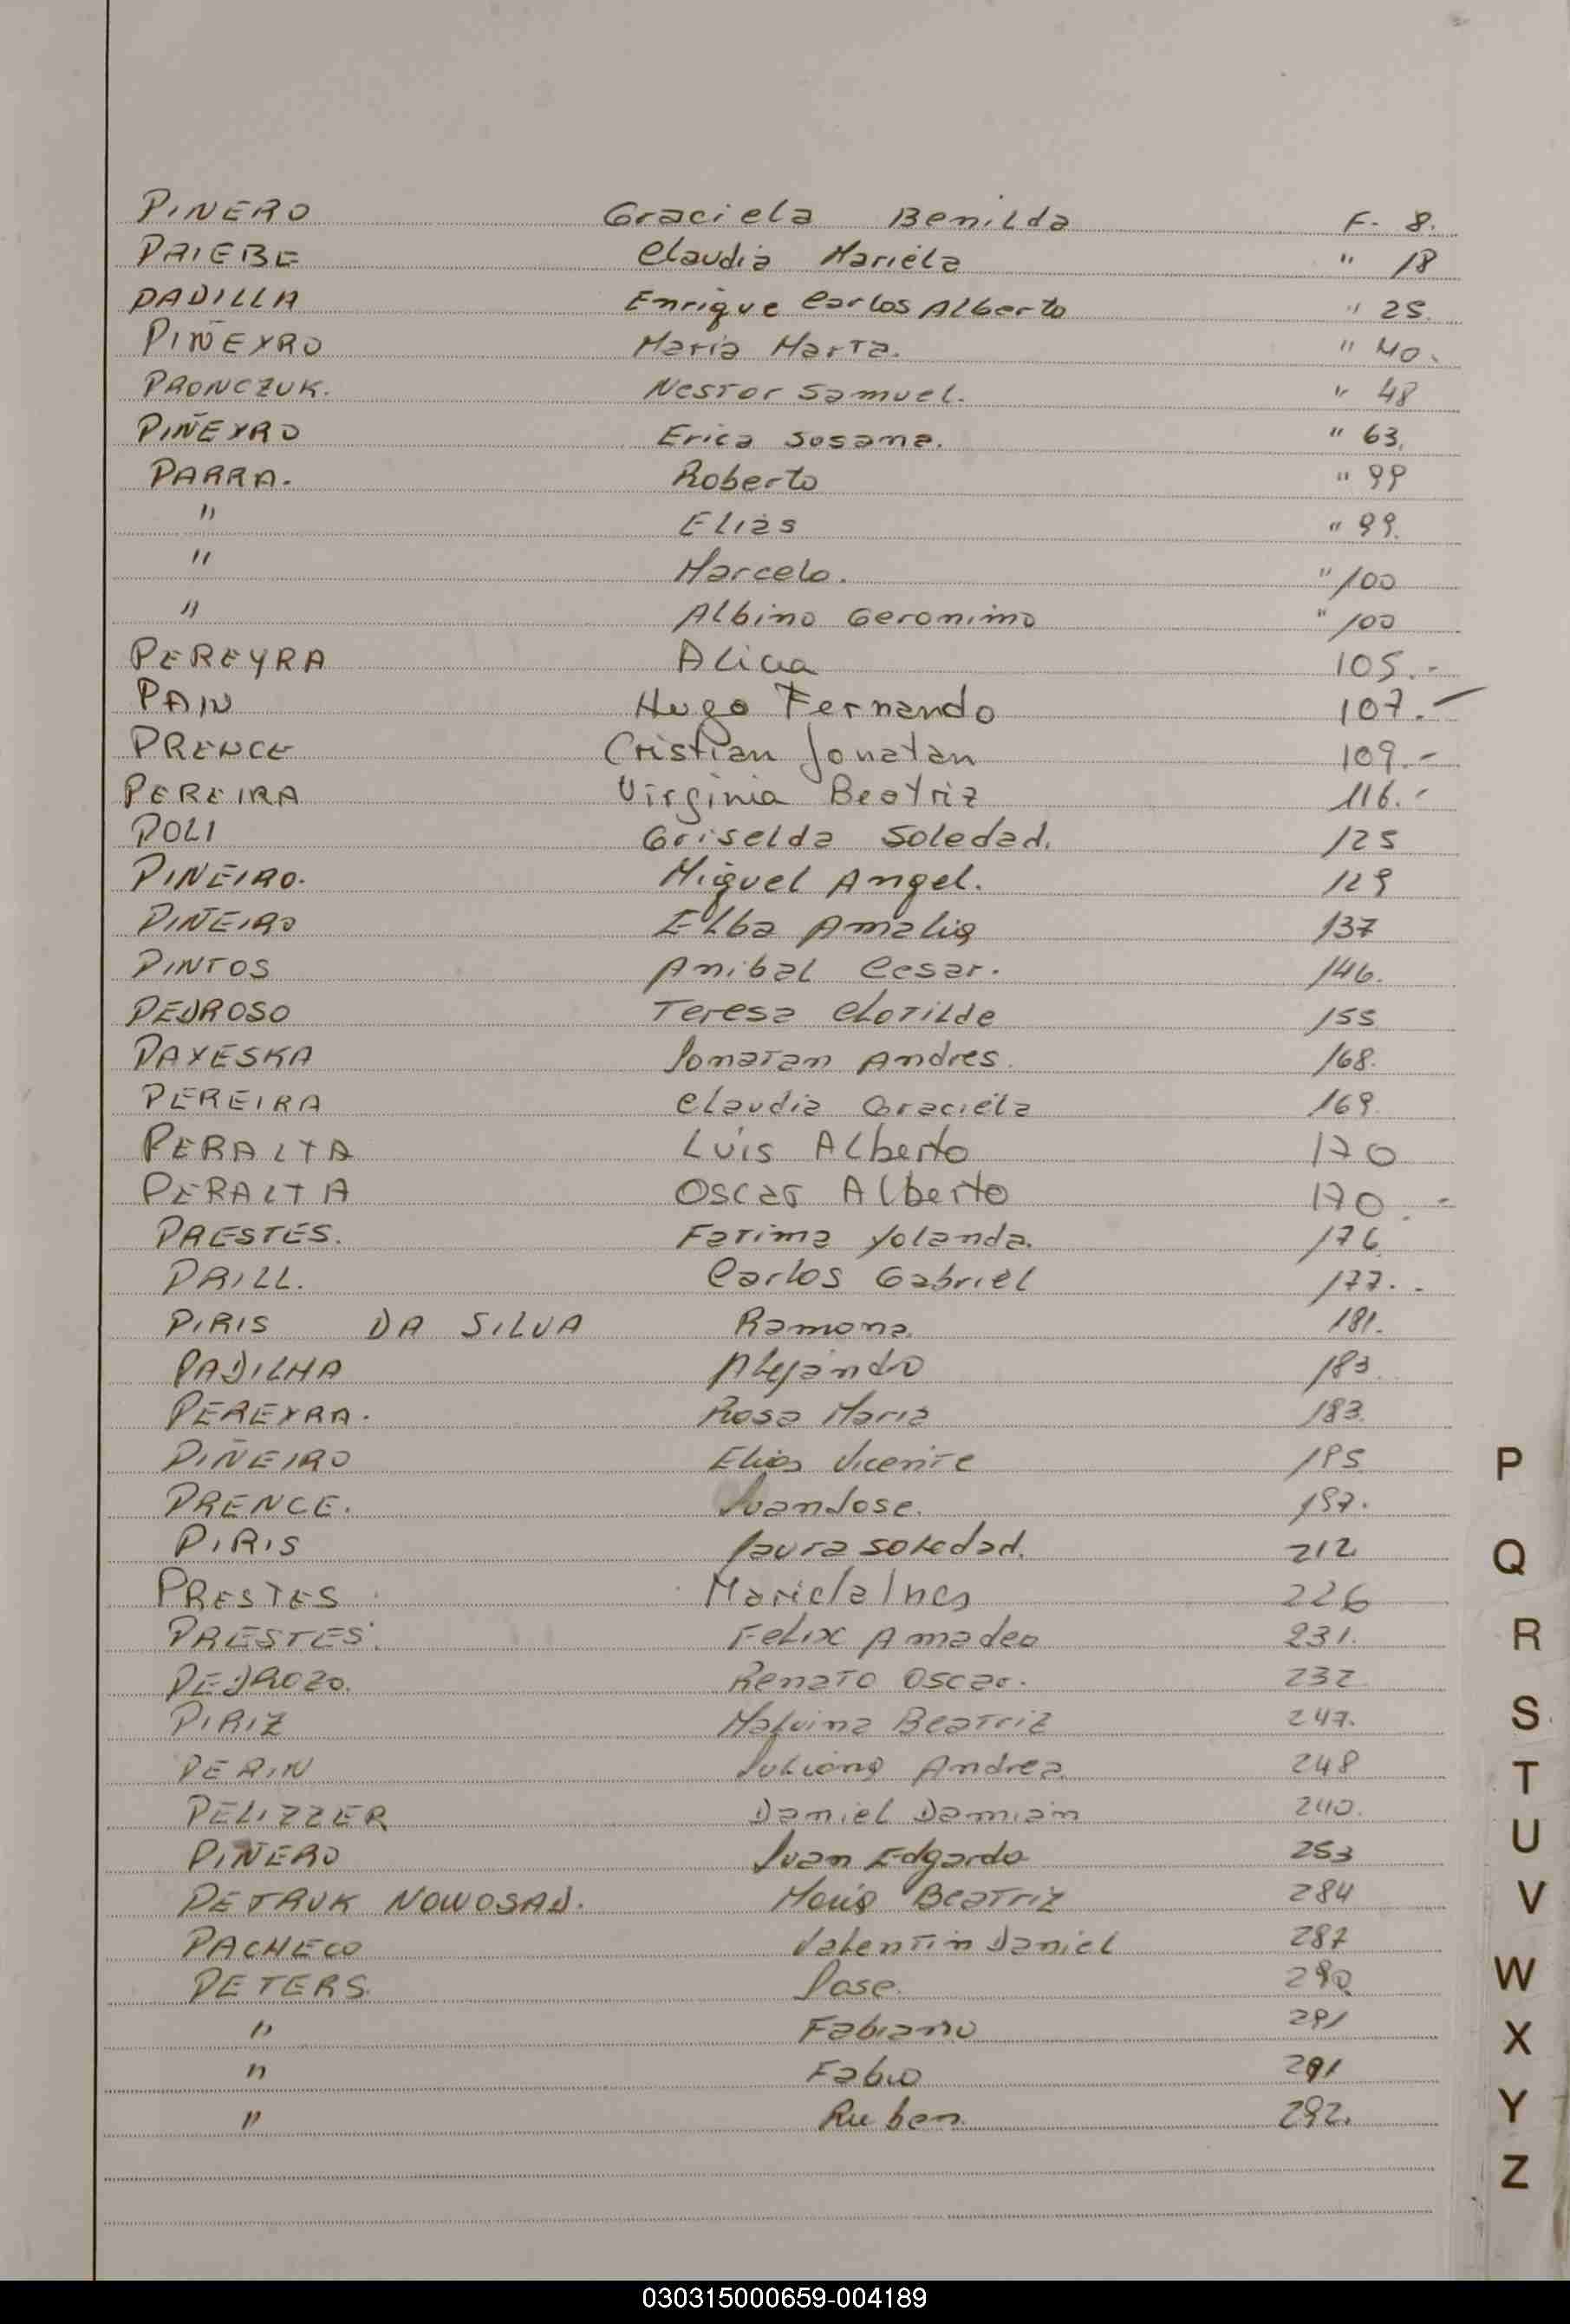 PINERO Graciela Benilda F- 8.
PRIEBE Claudia Mariela " 18
PADILLA Enrique Carlos Alberto " 25.
PIÑEYRO Maria Marta. " 40.
PRONCZUK. Nestor Samuel. " 48
PIÑEYRO Erica Sosana. " 63.
PARRA. Roberto " 99
" Elias " 99.
" Marcelo. " 100
" Albino Geronimo " 100
PEREYRA Alicia 105.-
PAIN Hugo Fernando 107.-
PRENCE Cristian Jonatan 109.-
PEREIRA Virginia Beatriz 116.-
POLI Griselda Soledad. 125
PINEIRO. Miguel Angel. 129
PIÑEIRO Elba Amalia 137
PINTOS Anibal Cesar. 146.
PEDROSO Teresa Clotilde 155
PAYESKA Jonatan Andres. 168.
PEREIRA Claudia Graciela 169.
PERALTA Luis Alberto 170
PERALTA Oscar Alberto 170.-
PRESTES. Fatima Yolanda. 176.
PRILL. Carlos Gabriel 177.-
PIRIS DA SILVA Ramona. 181.
PADILHA Alejandro 183.
PEREYRA. Rosa Maria 183.
PIÑEIRO Elias Vicente 195
PRENCE. Juan Jose. 197.
PIRIS Laura Soledad. 212
PRESTES Mariela Ines 226
PRESTES. Felix Amadeo 231.
PEDROZO. Renato Oscar. 232
PIRIZ Malvina Beatriz 247.
PERIN Juliana Andrea 248
PELIZZER Daniel Damian 240.
PIÑERO Juan Edgardo 253
PETRUK NOWOSAD. Maria Beatriz 284
PACHECO Valentin Daniel 287
PETERS. Jose. 290
" Fabiano 291
" Fabio 291
" Ruben. 292.
P
Q
R
S
T
U
V
W
X
Y
Z
030315000659-004189